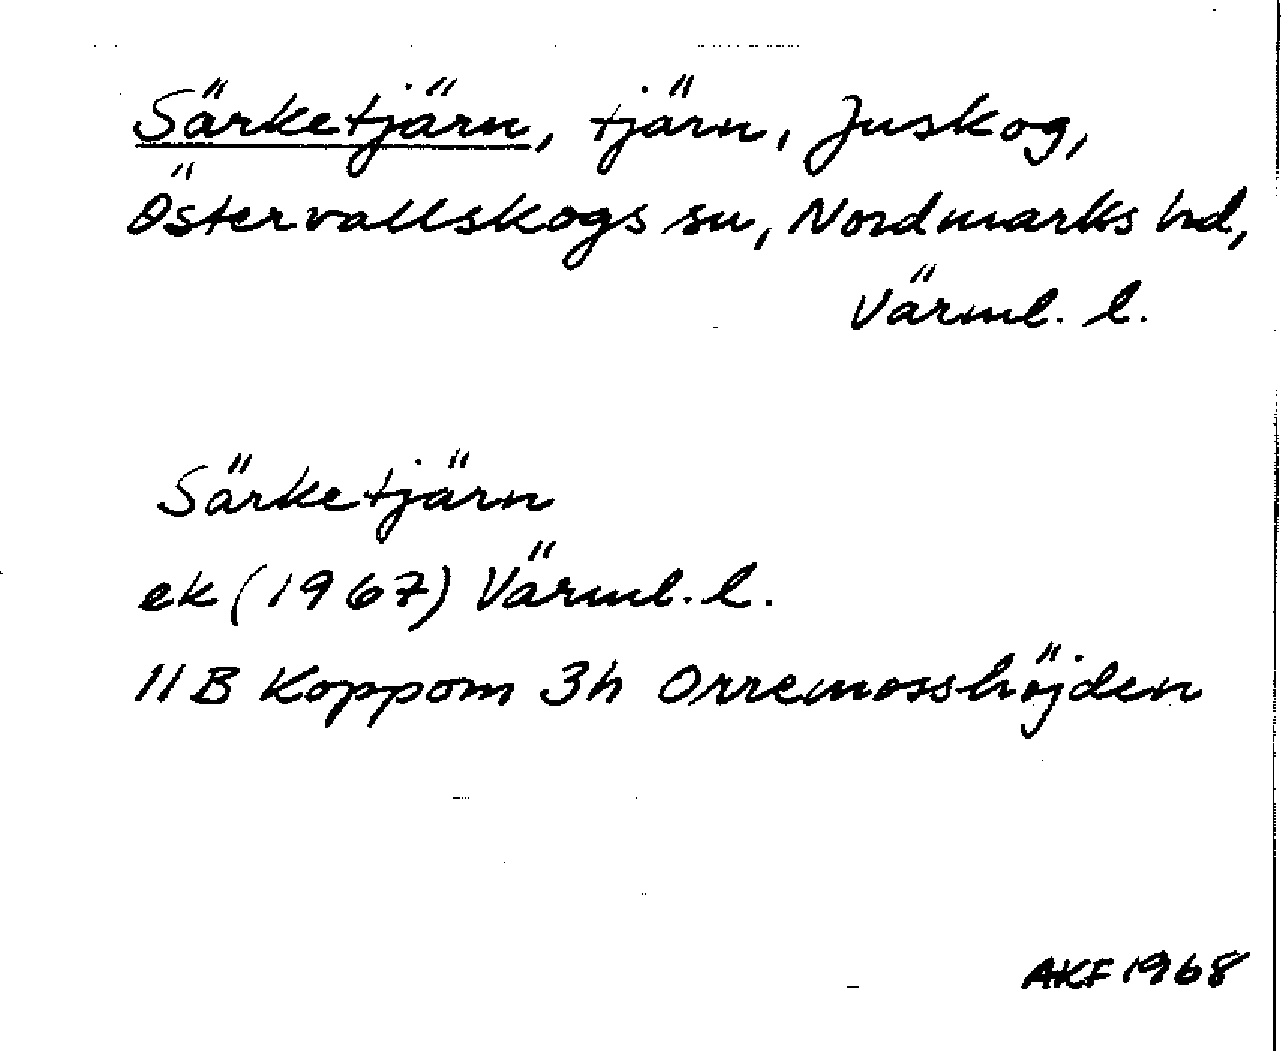 Särketjärn, tjärn, Juskog,
Östervallskogs sn, Nordmarks hd,
Värml. l.
Särketjärn
ek (1967) Värml. l.
11B Koppom 3h Orremosshöjden
AKF 1968